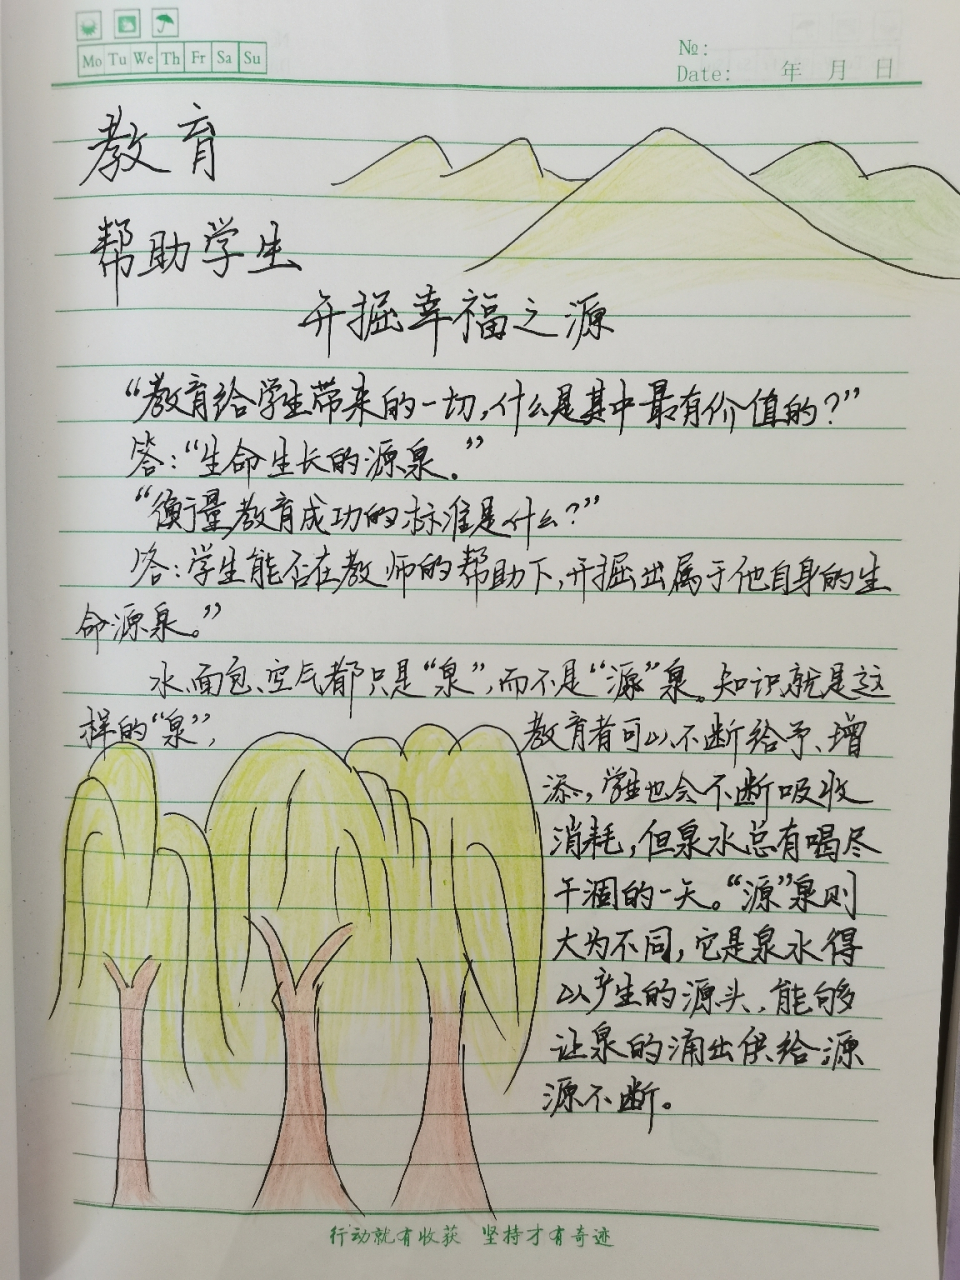 Mo Tu We Th Fr Sa Su
№:
Date: 年 月 日
教育
帮助学生
开掘幸福之源
“教育给学生带来的一切,什么是其中最有价值的?”
答:“生命生长的源泉.”
“衡量教育成功的标准是什么?”
答:学生能否在教师的帮助下,开掘出属于他自身的生
命源泉。”
水、面包、空气都只是“泉”,而不是“源”泉。知识就是这
样的“泉”,教育者可以不断给予、增
添,学生也会不断吸收
消耗,但泉水总有喝尽
干涸的一天。“源”泉则
大为不同,它是泉水得
以产生的源头,能够
让泉的涌出供给源
源不断。
行动就有收获 坚持才有奇迹